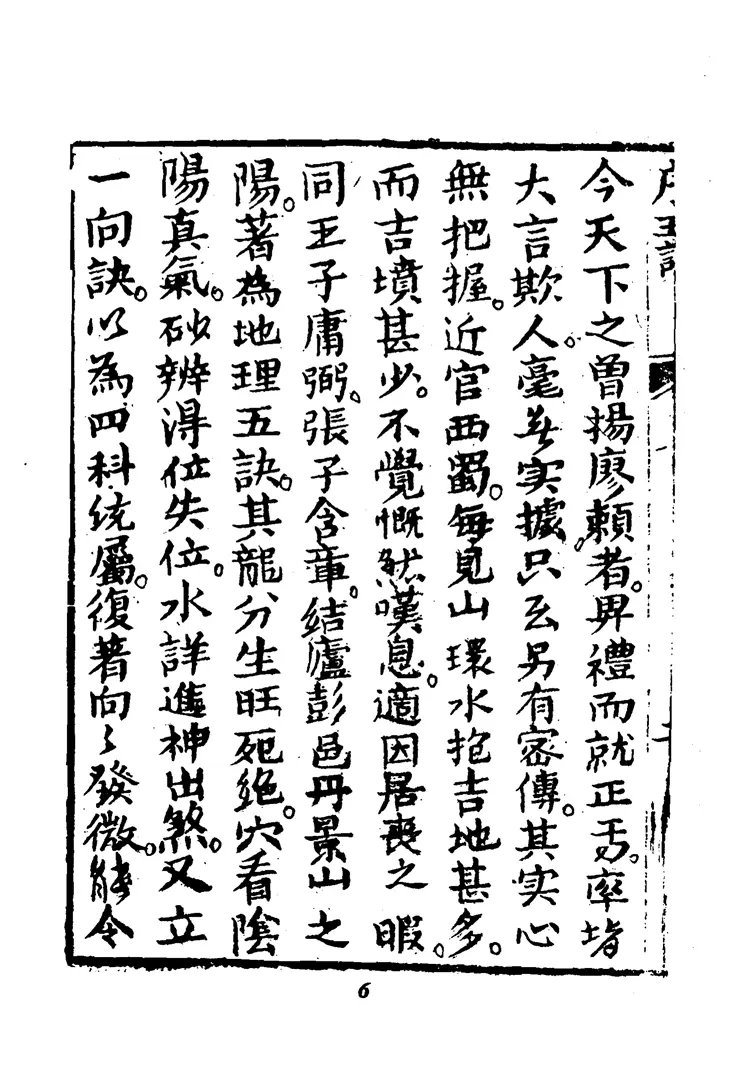 今天下之曾揚廖賴者。畀禮而就正焉。率皆
大言欺人。毫無实據。只云另有密傳。其实心
無把握。近官西蜀。每見山環水抱吉地甚多。
而吉墳甚少。不覺慨然嘆息。適因居喪之暇。
同王子庸弼。張子含章。結廬彭邑丹景山之
陽。著為地理五訣。其龍分生旺死絕。穴看陰
陽真氣。砂辨得位失位。水詳進神出煞。又立
一向訣。以為四科统屬。復著向〻發微。能令
6